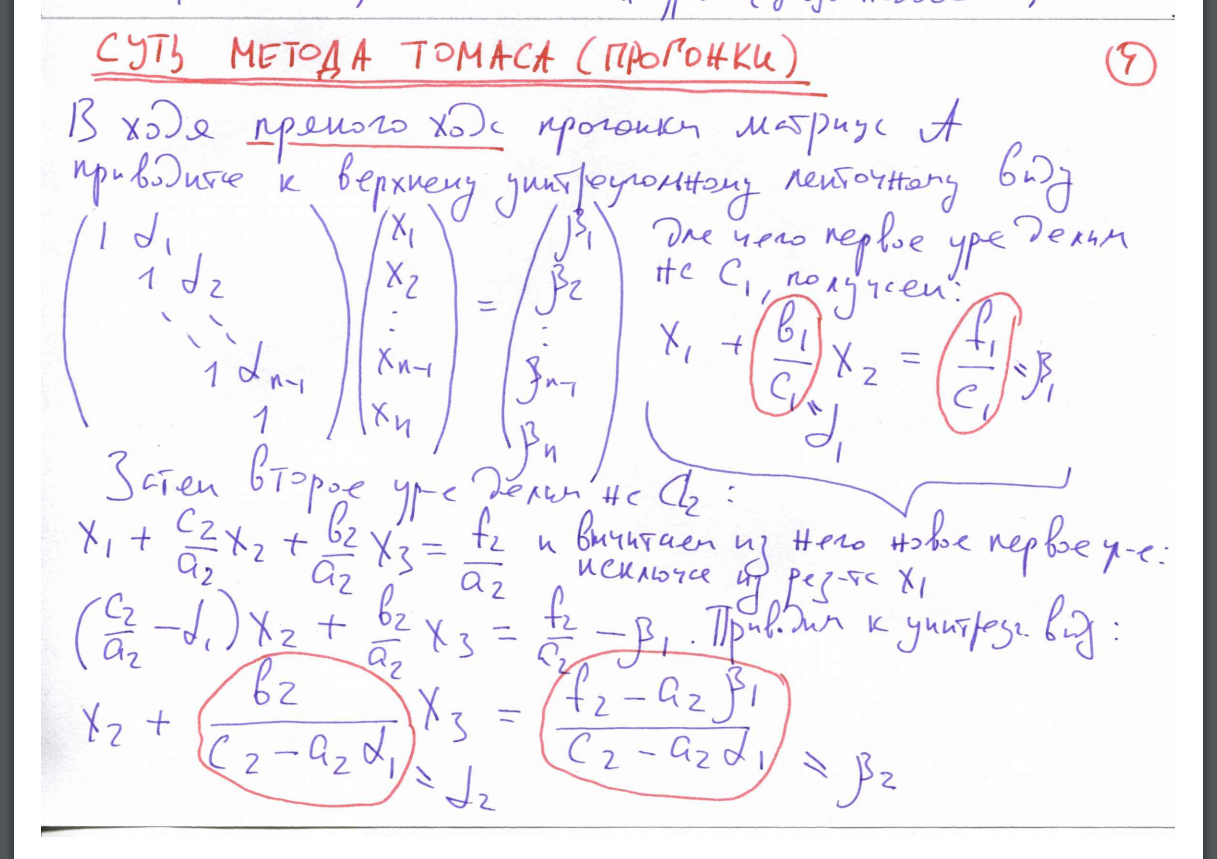 СУТЬ МЕТОДА ТОМАСА (ПРОГОНКИ)
4
В ходе прямого хода прогонки матрица A
приводится к верхнему унитреугольному ленточному виду
(1 α₁; 1 α₂; ⋱ ⋱; 1 αₙ₋₁; 1) (x₁; x₂; ⋮; xₙ₋₁; xₙ) = (β₁; β₂; ⋮; βₙ₋₁; βₙ)
для чего первое ур-е делим
на C₁, получаем:
x₁ + (b₁/c₁ = α₁) x₂ = f₁/c₁ = β₁
Затем второе ур-е делим на a₂:
x₁ + c₂/a₂ x₂ + b₂/a₂ x₃ = f₂/a₂ и вычитаем из него новое первое ур-е:
исключая из рез-та x₁
(c₂/a₂ − α₁) x₂ + b₂/a₂ x₃ = f₂/a₂ − β₁. Приводим к унитреуг. виду:
x₂ + b₂/(c₂ − a₂α₁) x₃ = (f₂ − a₂β₁)/(c₂ − a₂α₁) = β₂
= α₂